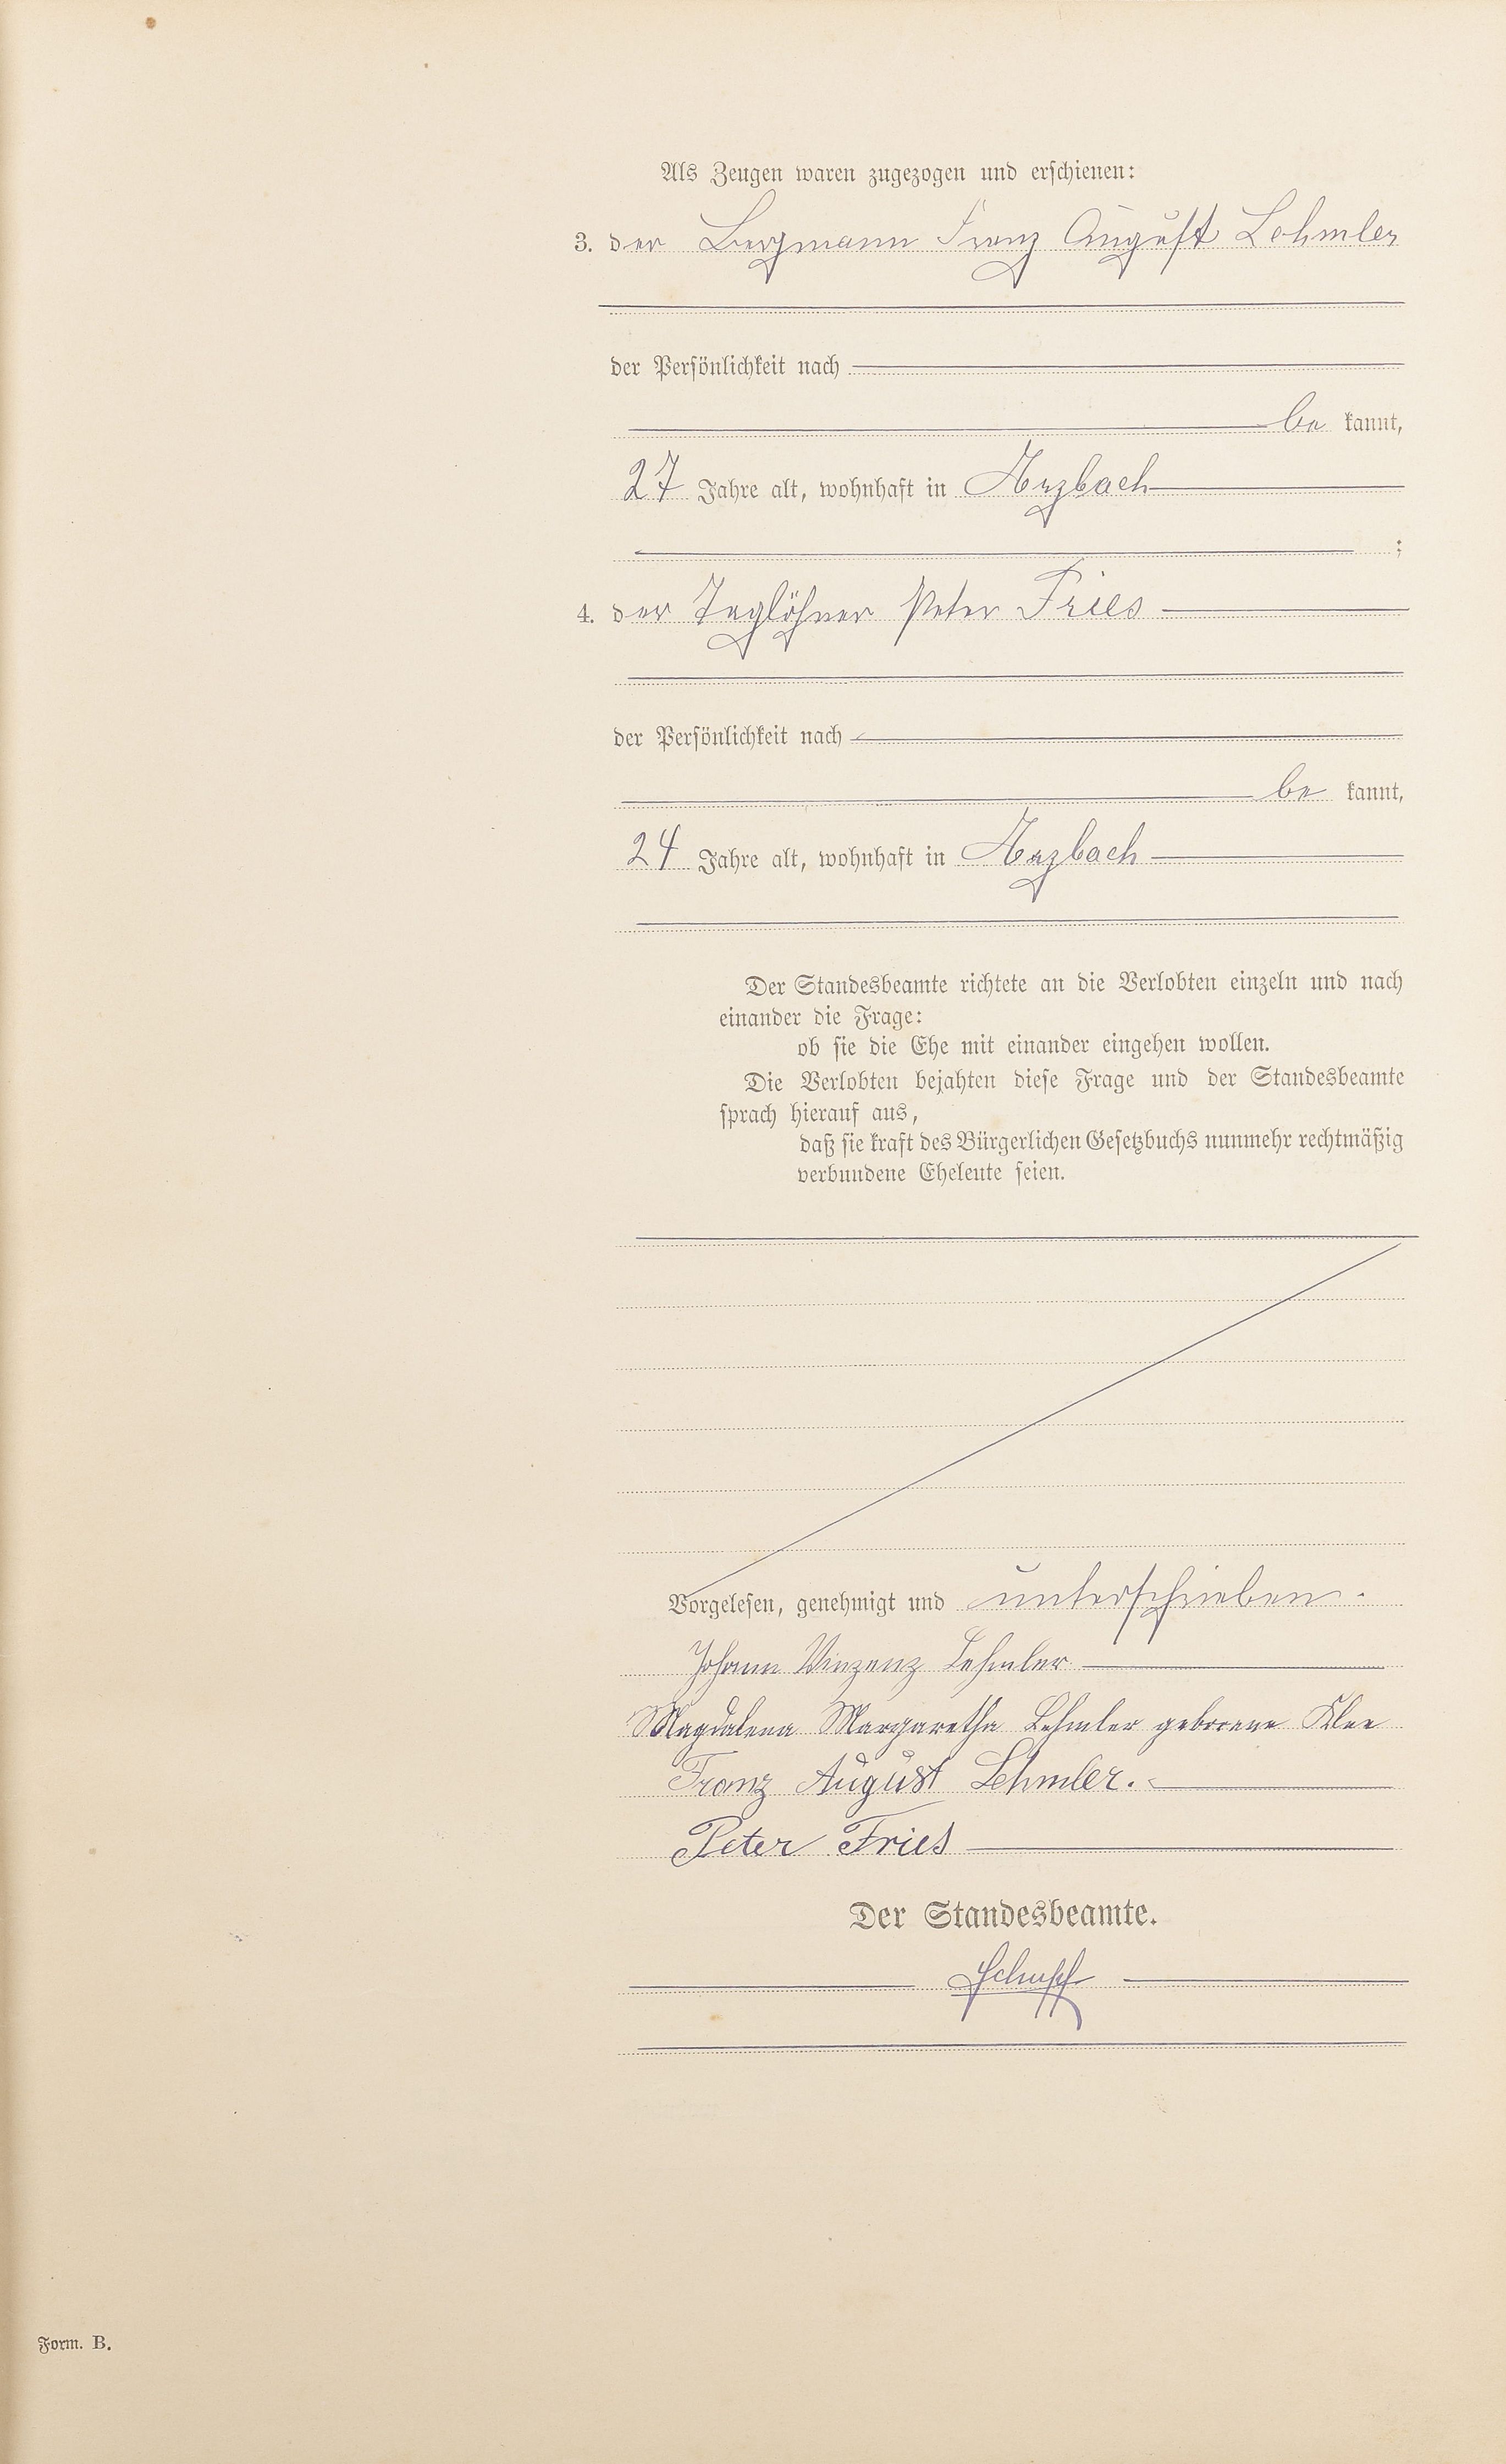 Als Zeugen waren zugezogen und erschienen:
3. der Bergmann Franz August Lehmler
der Persönlichkeit nach
be kannt,
27 Jahre alt, wohnhaft in Arzbach
;
4. der Taglöhner Peter Fries
der Persönlichkeit nach
be kannt,
24 Jahre alt, wohnhaft in Arzbach
Der Standesbeamte richtete an die Verlobten einzeln und nach
einander die Frage:
ob sie die Ehe mit einander eingehen wollen.
Die Verlobten bejahten diese Frage und der Standesbeamte
sprach hierauf aus,
daß sie kraft des Bürgerlichen Gesetzbuchs nunmehr rechtmäßig
verbundene Eheleute seien.
Vorgelesen, genehmigt und unterschrieben.
Johann Vinzenz Lehmler
Magdalena Margaretha Lehmler geborene Klee
Franz August Lehmler.
Peter Fries
Der Standesbeamte.
Form. B.